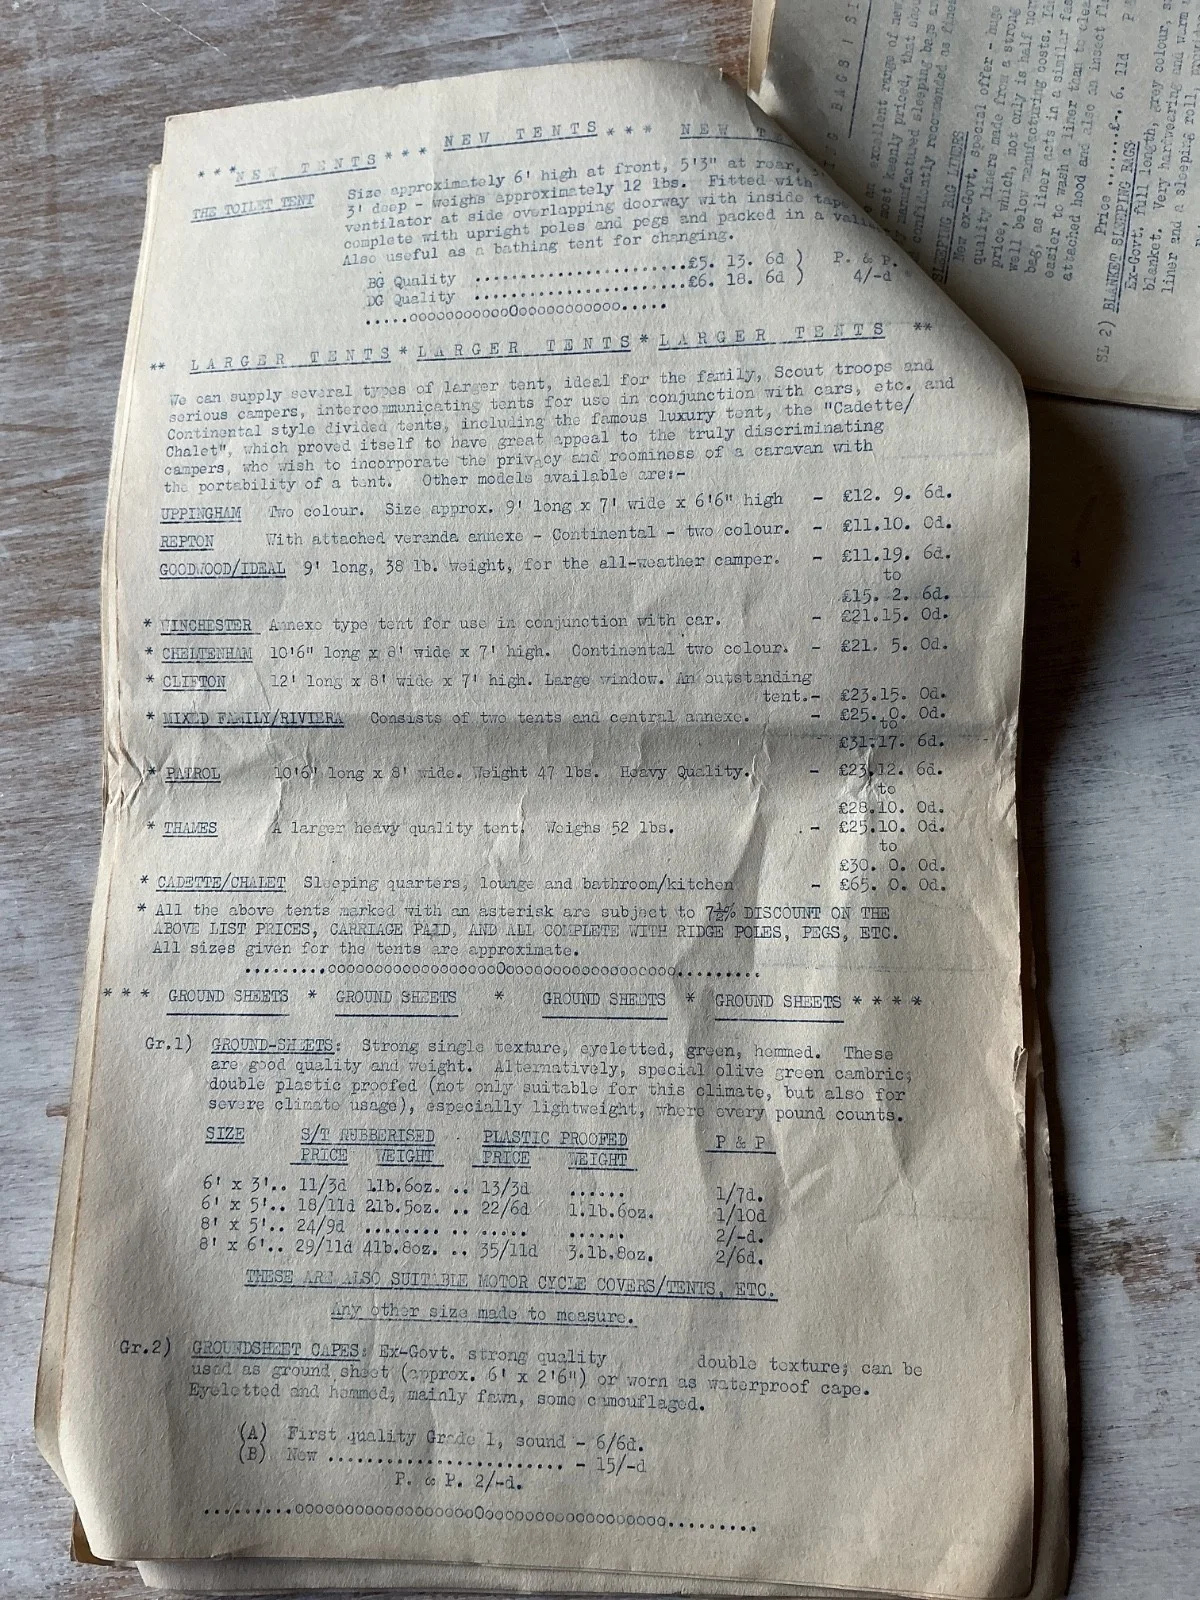 ***NEW TENTS*** NEW TENTS*** NEW
THE TOILET TENT Size approximately 6' high at front, 5'3" at rear,
3' deep - weighs approximately 12 lbs. Fitted with
ventilator at side overlapping doorway with inside
complete with upright poles and pegs and packed in a
Also useful as a bathing tent for changing.
BG Quality ..........................£5. 13. 6d ) P. & P.
DG Quality ..........................£6. 18. 6d ) 4/-d
.....oooooooooooOoooooooooooo.....
** LARGER TENTS * LARGER TENTS * LARGER TENTS **
We can supply several types of larger tent, ideal for the family, Scout troops and
serious campers, intercommunicating tents for use in conjunction with cars, etc. and
Continental style divided tents, including the famous luxury tent, the "Cadette/
Chalet", which proved itself to have great appeal to the truly discriminating
campers, who wish to incorporate the privacy and roominess of a caravan with
the portability of a tent. Other models available are:-
UPPINGHAM Two colour. Size approx. 9' long x 7' wide x 6'6" high - £12. 9. 6d.
REPTON With attached veranda annexe - Continental - two colour. - £11.10. 0d.
GOODWOOD/IDEAL 9' long, 38 lb. weight, for the all-weather camper. - £11.19. 6d.
to
£15. 2. 6d.
* WINCHESTER Annexe type tent for use in conjunction with car. - £21.15. 0d.
* CHELTENHAM 10'6" long x 8' wide x 7' high. Continental two colour. - £21. 5. 0d.
* CLIFTON 12' long x 8' wide x 7' high. Large window. An outstanding
tent.- £23.15. 0d.
* MIXED FAMILY/RIVIERA Consists of two tents and central annexe. - £25. 0. 0d.
to
£31.17. 6d.
* PATROL 10'6" long x 8' wide. Weight 47 lbs. Heavy Quality. - £23.12. 6d.
to
£28.10. 0d.
* THAMES A larger heavy quality tent. Weighs 52 lbs. - £25.10. 0d.
to
£30. 0. 0d.
* CADETTE/CHALET Sleeping quarters, lounge and bathroom/kitchen - £65. 0. 0d.
* All the above tents marked with an asterisk are subject to 7½% DISCOUNT ON THE
ABOVE LIST PRICES, CARRIAGE PAID, AND ALL COMPLETE WITH RIDGE POLES, PEGS, ETC.
All sizes given for the tents are approximate.
.........oooooooooooooooooooooOooooooooooooooooooooo.........
* * * GROUND SHEETS * GROUND SHEETS * GROUND SHEETS * GROUND SHEETS * * * *
Gr.1) GROUND-SHEETS: Strong single texture, eyeletted, green, hemmed. These
are good quality and weight. Alternatively, special olive green cambric,
double plastic proofed (not only suitable for this climate, but also for
severe climate usage), especially lightweight, where every pound counts.
SIZE S/T RUBBERISED PLASTIC PROOFED P & P
PRICE WEIGHT PRICE WEIGHT
6' x 3'.. 11/3d 1lb.6oz. .. 13/3d ...... 1/7d.
6' x 5'.. 18/11d 2lb.5oz. .. 22/6d 1.lb.6oz. 1/10d
8' x 5'.. 24/9d ........ .. ..... ...... 2/-d.
8' x 6'.. 29/11d 4lb.8oz. .. 35/11d 3.lb.8oz. 2/6d.
THESE ARE ALSO SUITABLE MOTOR CYCLE COVERS/TENTS, ETC.
Any other size made to measure.
Gr.2) GROUNDSHEET CAPES: Ex-Govt. strong quality double texture; can be
used as ground sheet (approx. 6' x 2'6") or worn as waterproof cape.
Eyeletted and hemmed; mainly fawn, some camouflaged.
(A) First quality Grade 1, sound - 6/6d.
(B) New ........................ - 15/-d
P. & P. 2/-d.
.........ooooooooooooooooooooOoooooooooooooooooooo.........
BAGS! SL
an excellent range of new,
most keenly priced, that
manufactured sleeping bags
confidently recommended as
SLEEPING BAG LINERS
New ex-Govt. special offer - huge
quality liners made from a strong
price, which, not only is half
well below manufacturing costs.
bag, as liner acts in a similar
easier to wash a liner than to
attached hood and also an insect
Price ........£-. 6. 11d
SL 2) BLANKET SLEEPING BAGS
Ex-Govt. full length, grey colour,
blanket. Very hardwearing and warm
liner and a sleeping roll,